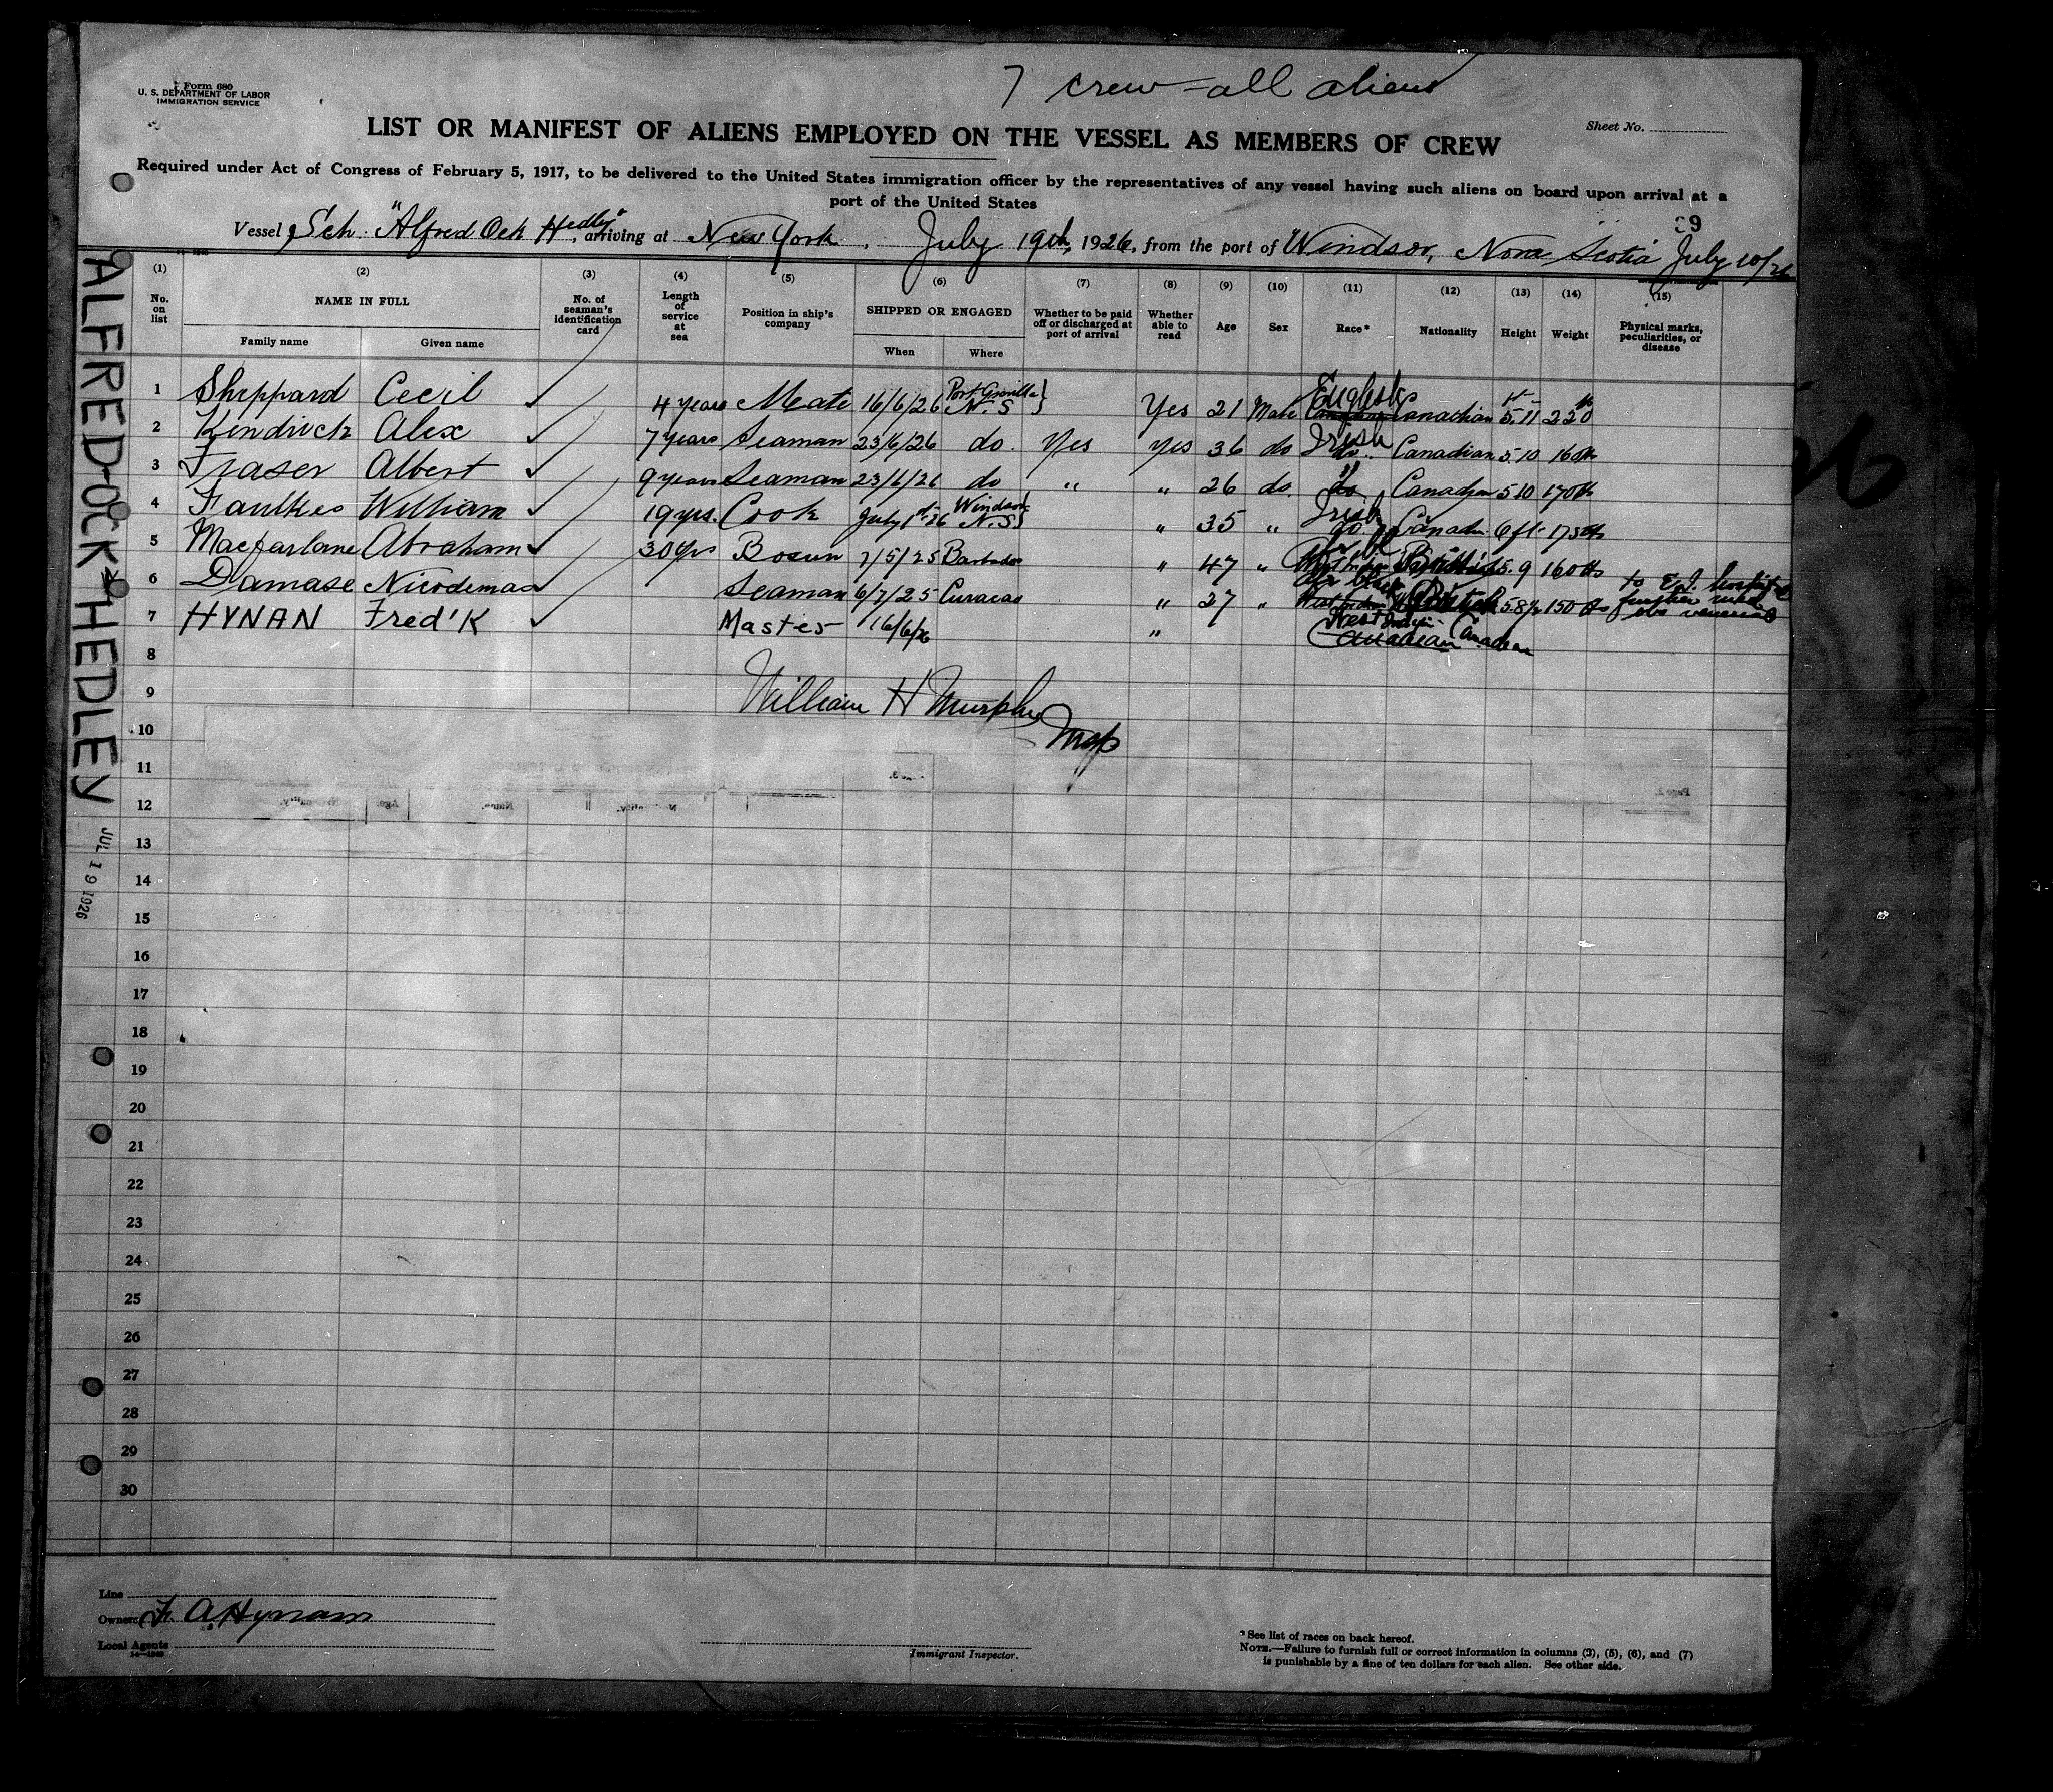 7 crew - all aliens
Form 680
U. S. DEPARTMENT OF LABOR
IMMIGRATION SERVICE
Sheet No.
LIST OR MANIFEST OF ALIENS EMPLOYED ON THE VESSEL AS MEMBERS OF CREW
Required under Act of Congress of February 5, 1917, to be delivered to the United States immigration officer by the representatives of any vessel having such aliens on board upon arrival at a
port of the United States
39
Vessel Sch. "Alfred Ock Hedley", arriving at New York, July 19th, 1926, from the port of Windsor, Nova Scotia July 10/26
(1) (2) (3) (4) (5) (6) (7) (8) (9) (10) (11) (12) (13) (14) (15)
No. on list NAME IN FULL No. of seaman's identification card Length of service at sea Position in ship's company SHIPPED OR ENGAGED Whether to be paid off or discharged at port of arrival Whether able to read Age Sex Race* Nationality Height Weight Physical marks, peculiarities, or disease
Family name Given name When Where
1 Sheppard Cecil 4 years Mate 16/6/26 Port Greville N.S Yes 21 Male English Canadian 5.11 220
2 Kendrick Alex 7 years Seaman 23/6/26 do. Yes Yes 36 do Irish Canadian 5.10 160 lbs
3 Fraser Albert 9 years Seaman 23/6/26 do " " 26 do. " do Canadian 5.10 170 lbs
4 Faulkes William 19 yrs. Cook July 1st 26 Windsor N.S " 35 " Irish do. Canadn 6 ft 173 lbs
5 Macfarlane Abraham 30 yrs Bosun 7/5/25 Barbados " 47 " West Indian British 5.9 160 lbs
6 Damase Nicodemas Seaman 6/7/25 Curacao " 27 " Afr black West Indian 5.8½ 150 lbs to E.I. hospital
7 HYNAN Fred'K Master 16/6/26 " Canadian Canadian
8
William H Murphy
9
10
11
12
13
14
15
16
17
18
19
20
21
22
23
24
25
26
27
28
29
30
ALFRED-OCK-HEDLEY
JUL 19 1926
Line
Owners F. A. Hynan
Local Agents
Immigrant Inspector.
* See list of races on back hereof.
NOTE.—Failure to furnish full or correct information in columns (2), (5), (6), and (7)
is punishable by a fine of ten dollars for each alien. See other side.